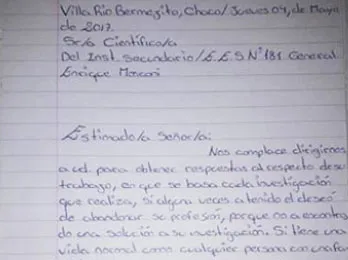 Villa Río Bermejito, Chaco/ Jueves 04, de Mayo
de 2017.
Sr/a Científico/a
Del Inst. Secundario/ E.E.S Nº 181 General
Enrique Mosconi
Estimado/a Señor/a:
Nos complace dirigirnos
a ud. para obtener respuestas al respecto de su
trabajo, en que se basa cada investigación
que realiza, si alguna veces a tenido el deseo
de abandonar su profesión, porque no a encontra
do una solución a su investigación. Si tiene una
vida normal como cualquier persona con una fa